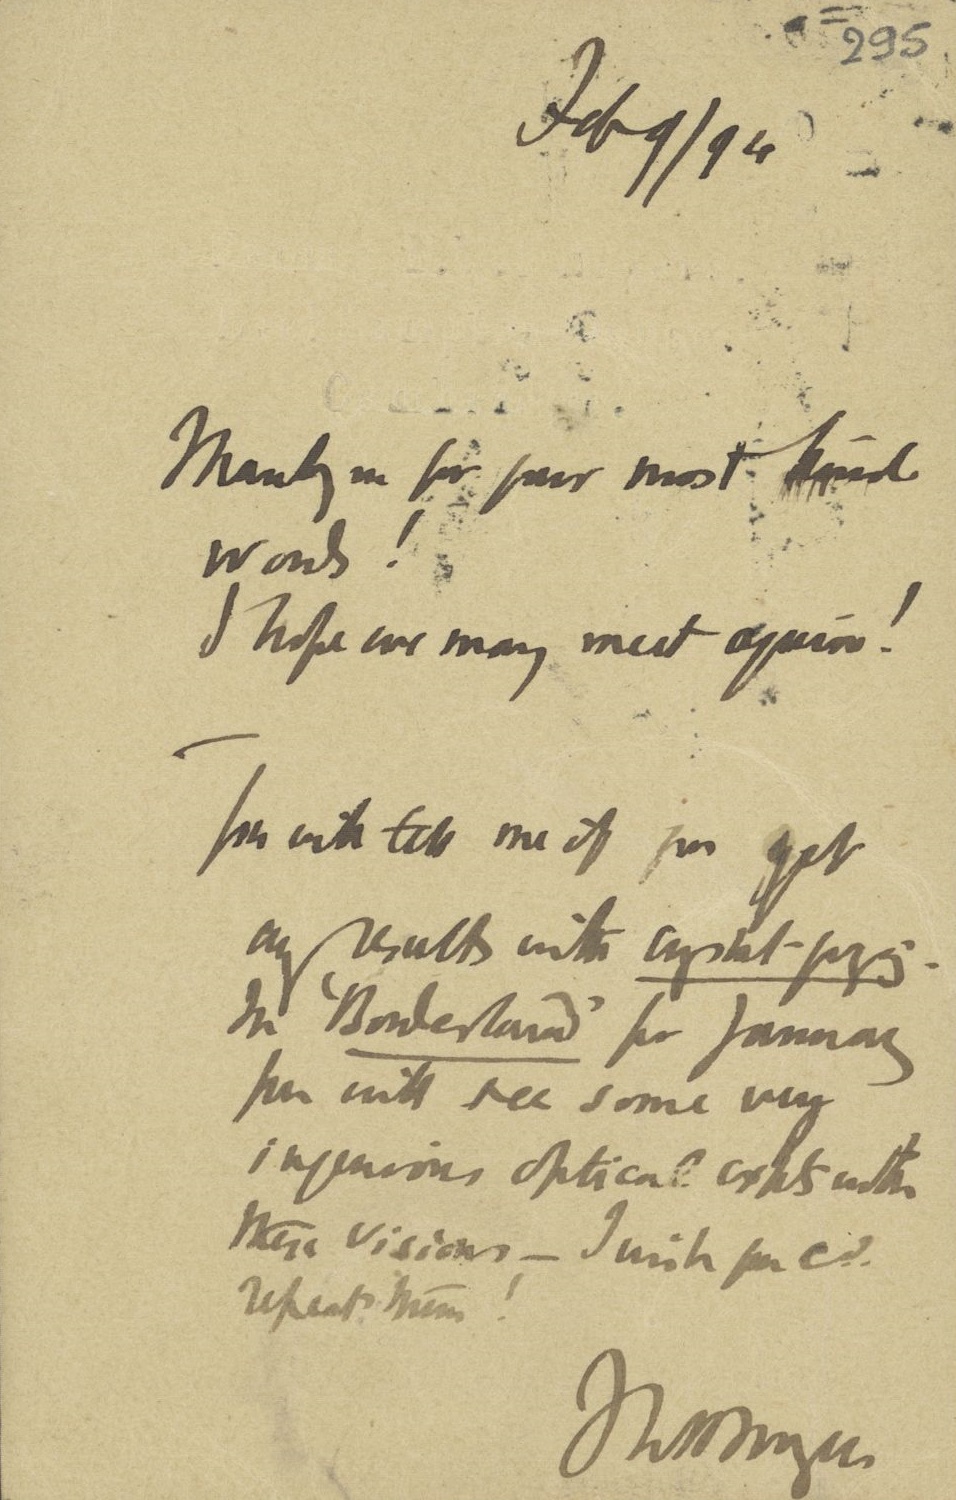 295
Feb 9/94
Thank you for your most kind
words!
I hope we may meet again!
You will tell me if you get
any results with crystal-gazing.
In 'Borderland' for January
you will see some very
ingenious optical expts with
these visions – I wish you cd.
repeat them!